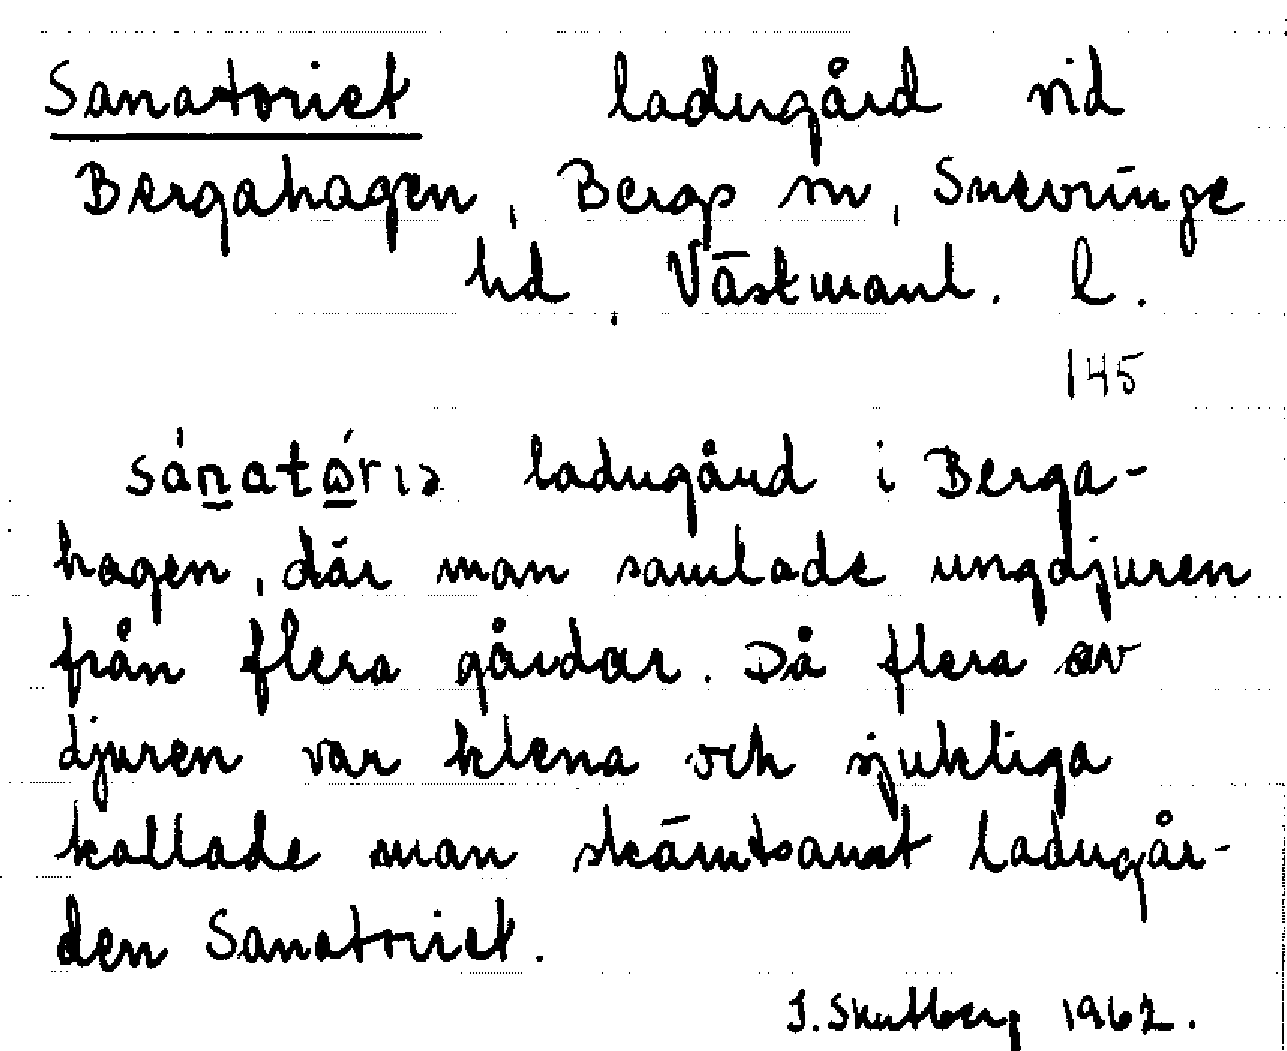 Sanatoriet ladugård vid
Bergahagen, Bergs sn, Snevringe
hd, Västmanl. l.
145
sánatɷ́riə ladugård i Berga-
hagen, där man samlade ungdjuren
från flera gårdar. Då flera av
djuren var klena och sjukliga
kallade man skämtsamt ladugår-
den Sanatoriet.
J. Skutberg 1962.